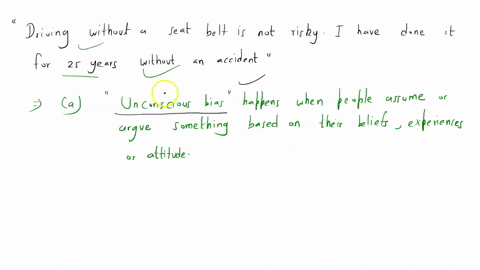 "Driving without a seat belt is not risky. I have done it
for 25 years without an accident"
⇒ (a) "Unconscious bias" happens when people assume or
argue something based on their beliefs, experienses
or attitude.